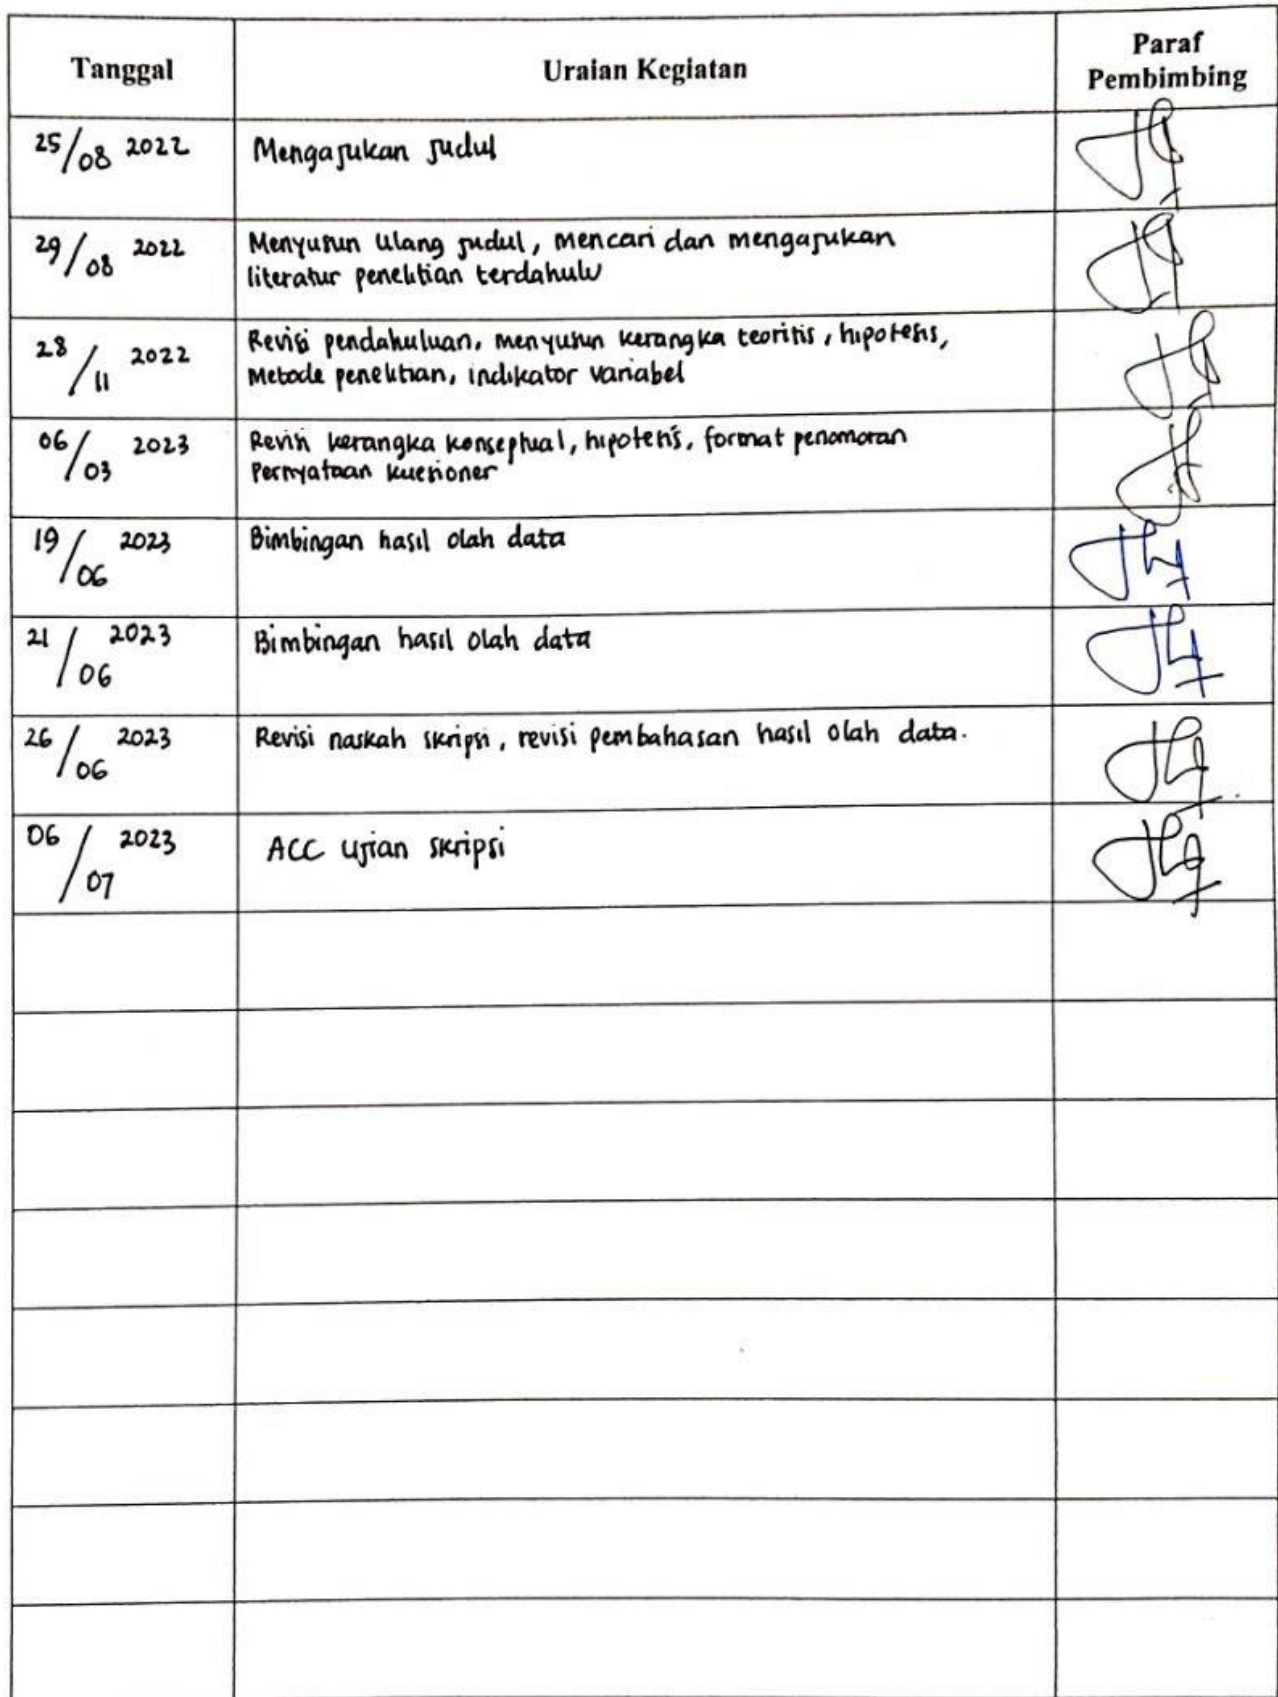 Tanggal
Uraian Kegiatan
Paraf
Pembimbing
25/08 2022
Mengajukan judul
29/08 2022
Menyusun ulang judul, mencari dan mengajukan
literatur penelitian terdahulu
28/11 2022
Revisi pendahuluan, menyusun kerangka teoritis, hipotesis,
Metode penelitian, indikator variabel
06/03 2023
Revisi kerangka konseptual, hipotesis, format penomoran
Pernyataan kuesioner
19/06 2023
Bimbingan hasil olah data
21/06 2023
Bimbingan hasil olah data
26/06 2023
Revisi naskah skripsi, revisi pembahasan hasil olah data.
06/07 2023
ACC ujian skripsi